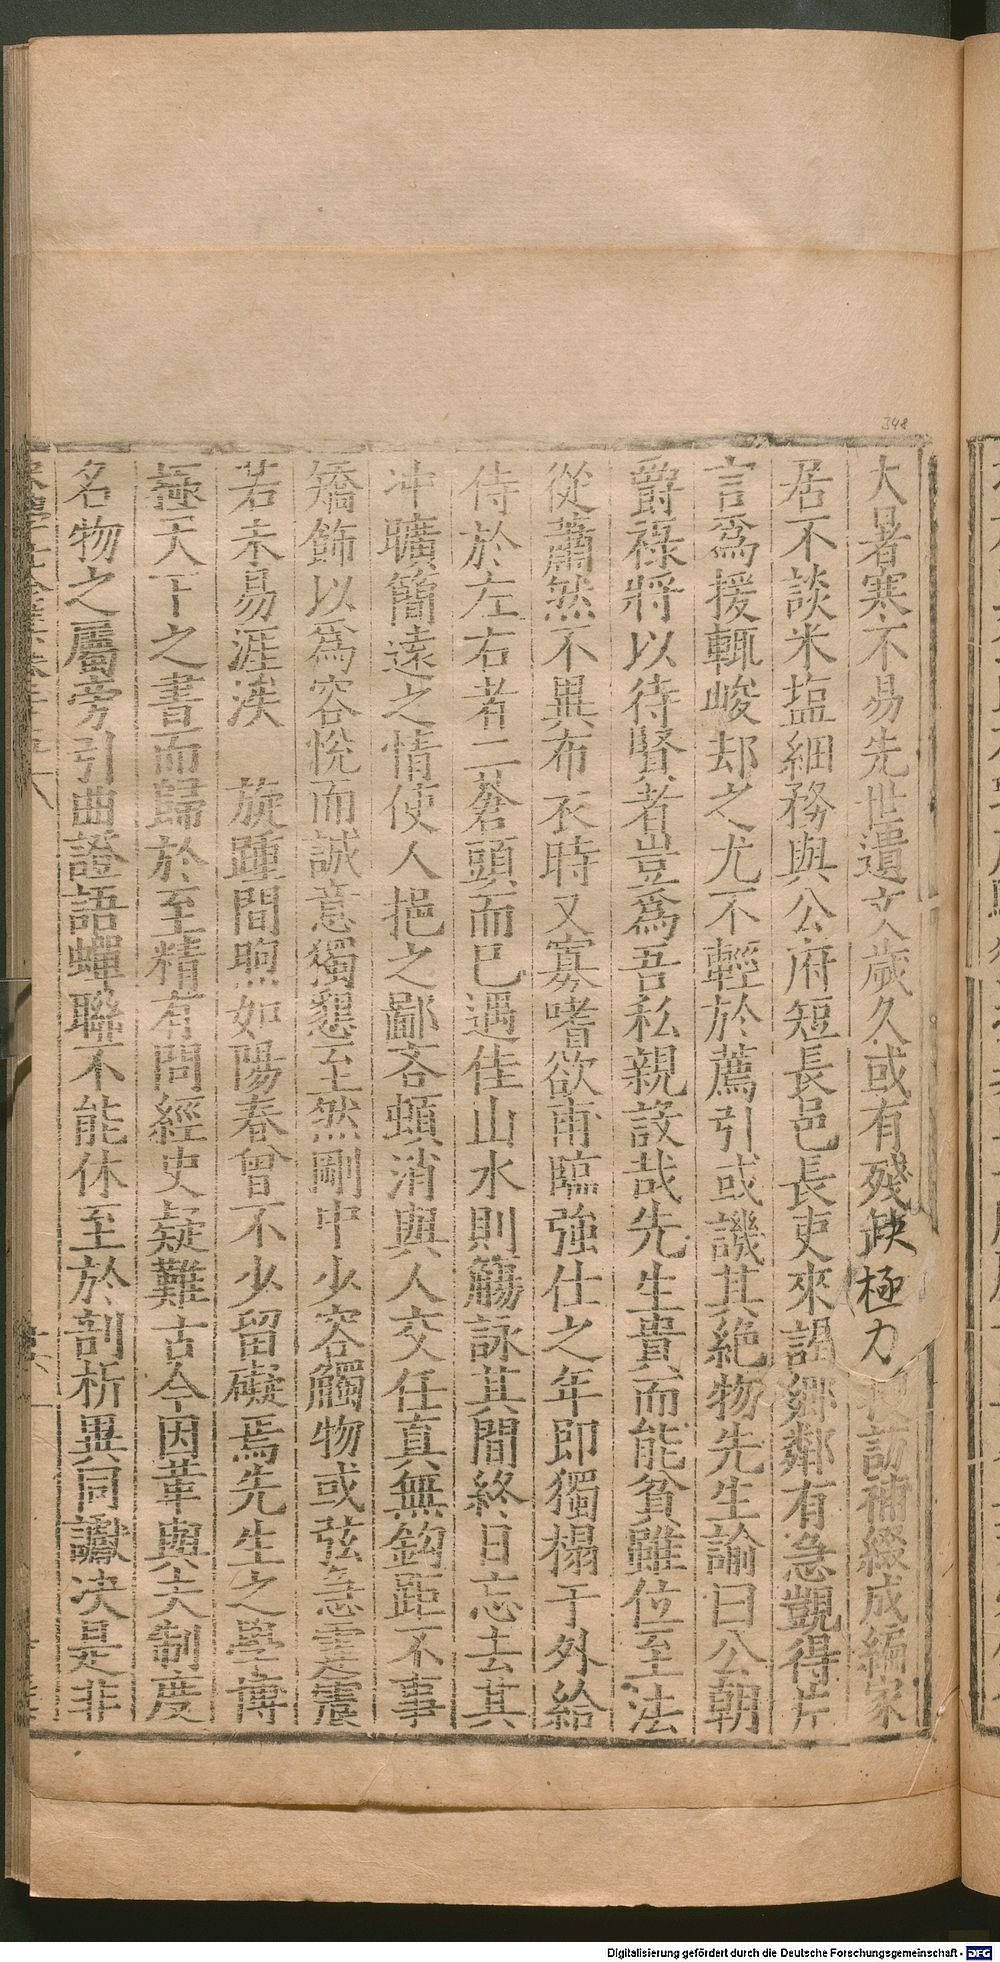 348
大暑寒不易先世遺文歲久或有殘缺極力搜訪補綴成編家
居不談米塩細務與公府短長邑長吏來謁鄉鄰有急覬得片
言爲援輒峻却之尤不輕於薦引或譏其絶物先生諭曰公朝
爵祿將以待賢者豈爲吾私親設哉先生貴而能貧雖位至法
從蕭然不異布衣時又寡嗜欲甫臨強仕之年即獨榻于外給
侍於左右者二蒼頭而已遇佳山水則觴詠其間終日忘去其
冲曠簡遠之情使人挹之鄙吝頓消與人交任真無鉤距不事
矯飾以爲容悅而誠意獨懇至然剛中少容觸物或弦急霆震
若未易涯涘 旋踵間煦如陽春曾不少留礙焉先生之學博
極天下之書而歸於至精有問經史疑難古今因革與夫制度
名物之屬旁引曲證語蟬聯不能休至於剖析異同讞决是非
Digitalisierung gefördert durch die Deutsche Forschungsgemeinschaft - DFG